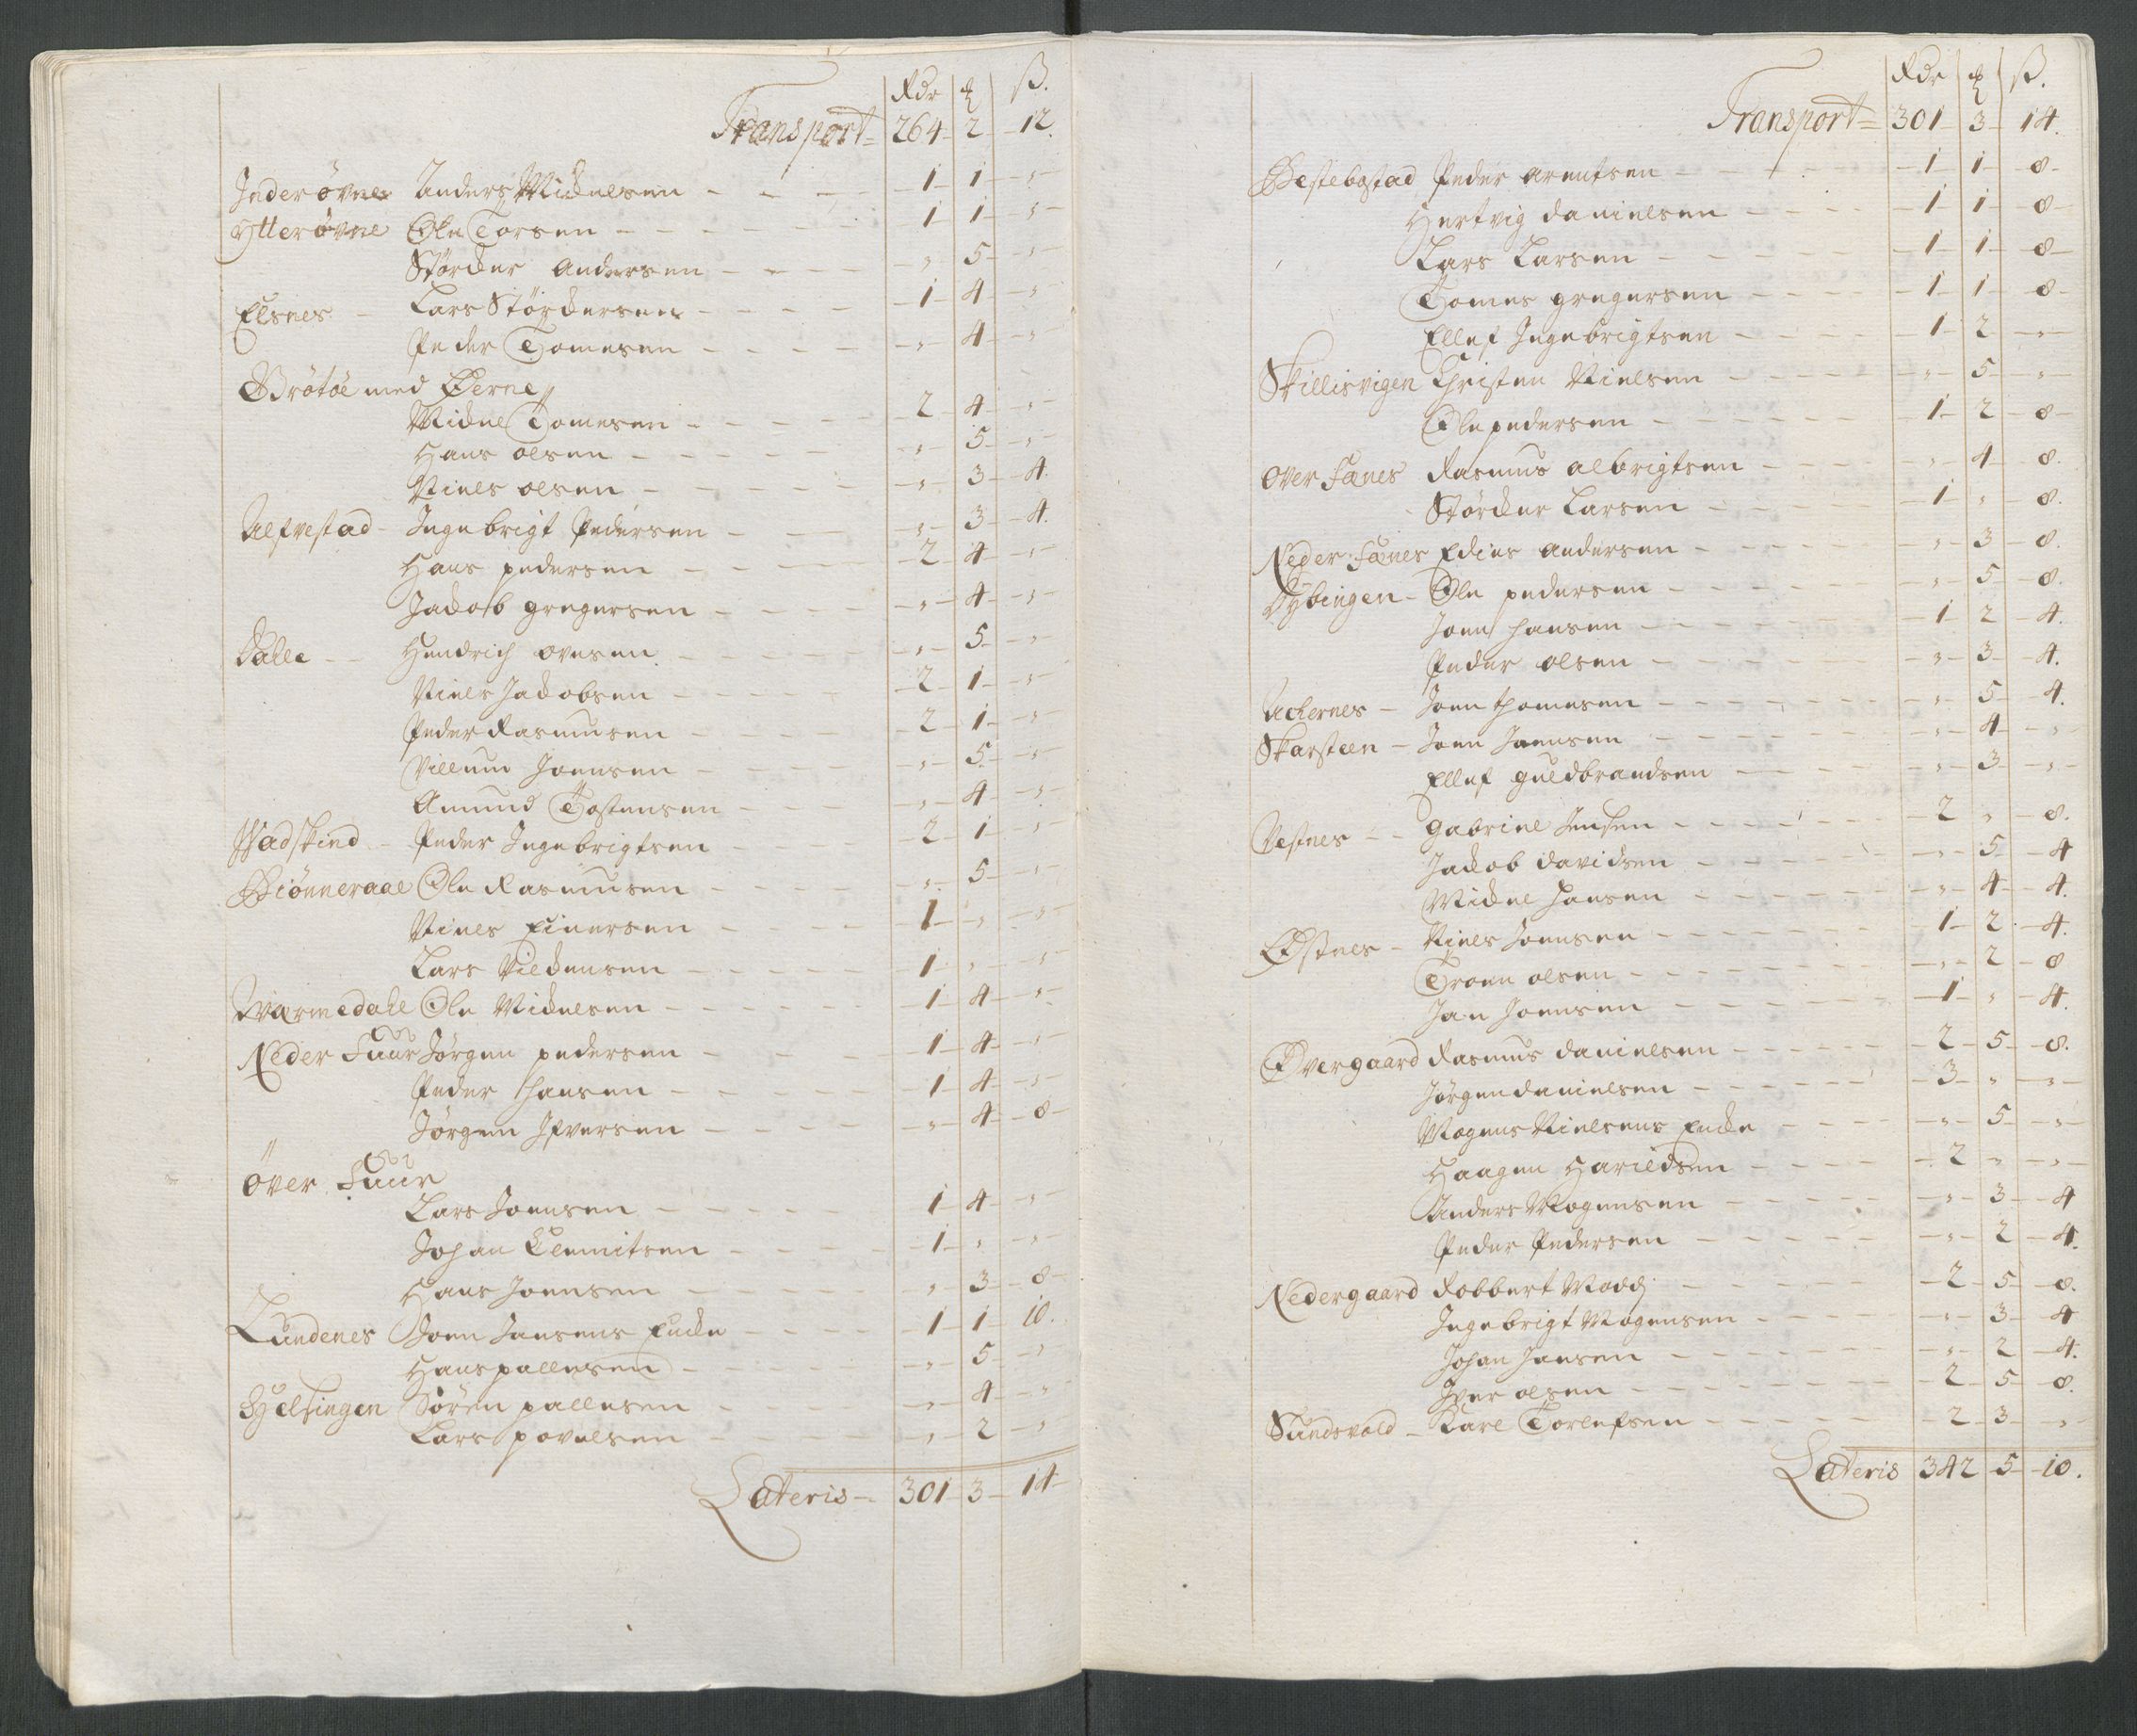 Rdr ß.
Transport 264 2 12.
Inderøvne Anders Michelsen 1 1 "
Ytterøvne Ole Torsen 1 1 "
Størcker Andersen " 5 "
Elsnes Lars Størckersen 1 4 "
Peder Tomesen " 4 "
Brötöe med Øerne
Michel Tomesen 2 4 "
Hans olsen " 5 "
Niels olsen " 3 4.
Alfvestad Ingebrigt Pedersen " 3 4.
Hans pedersen 2 4 "
Jacob gregersen " 4 "
Dahle Hendrich ovesen " 5 "
Niels Jacobsen 2 1 "
Peder Rasmusen 2 1 "
Villum Joensen " 5 "
Amund Tostensen " 4 "
Wadskind Peder Ingebrigtsen 2 1 "
Biönneraae Ole Rasmusen " 5 "
Niels Einersen 1 " "
Lars Vildensen 1 " "
Warmedahl Ole Michelsen 1 4 "
Neder Fuur Jörgen pedersen 1 4 "
Peder hansen 1 4 "
Jörgen Ifversen " 4 8
Över Fuur
Lars Joensen 1 4 "
Johan Clemitsen 1 " "
Hans Joensen " 3 8
Lundenes Joen Jansens Encke 1 1 10.
Hans pallesen " 5 "
Helsingen Sören pallesen " 4 "
Lars povelsen " 2 "
Lateris 301 3 14
Rdr ß.
Transport 301 3 14.
Bestebostad Peder arentsen 1 1 8
Hertvig danielsen 1 1 8
Lars Larsen 1 1 8
Tomes gregersen 1 1 8
Ellef Ingebrigtsen 1 2 "
Skillisvigen Christen Nielsen " 5 "
Ole pedersen 1 2 8
Over Fænes Rasmus albrigtsen " 4 8.
Størcker Larsen 1 " 8.
Neder Fænes Edies andersen " 3 8.
Dybingen Ole pedersen " 5 8.
Joen hansen 1 2 4.
Peder olsen " 3 4.
Achernes Joen thomesen " 5 4.
Skarsteen Joen Joensen " 4 "
Ellef guldbrandsen " 3 "
Vestnes Gabriel Jensen 2 " 8.
Jacob davidsen " 5 4
Michel hansen " 4 4.
Østnes Niels Joensen 1 2 4.
Troen olsen " 2 8
Jan Joensen 1 " 4.
Øvergaard Rasmus danielsen 2 5 8.
Jørgen danielsen 3 " "
Mogens Nielsens Encke " 5 "
Haagen Harildsen 2 " "
Anders Mogensen " 3 4
Peder Pedersen " 2 4.
Nedergaard Robbert Moddj 2 5 8.
Ingebrigt Mogensen " 3 4
Johan Jansen " 2 4.
Iver olsen 2 5 8.
Sundsvold Karl Torlefsen 2 3 "
Lateris 342 5 10.